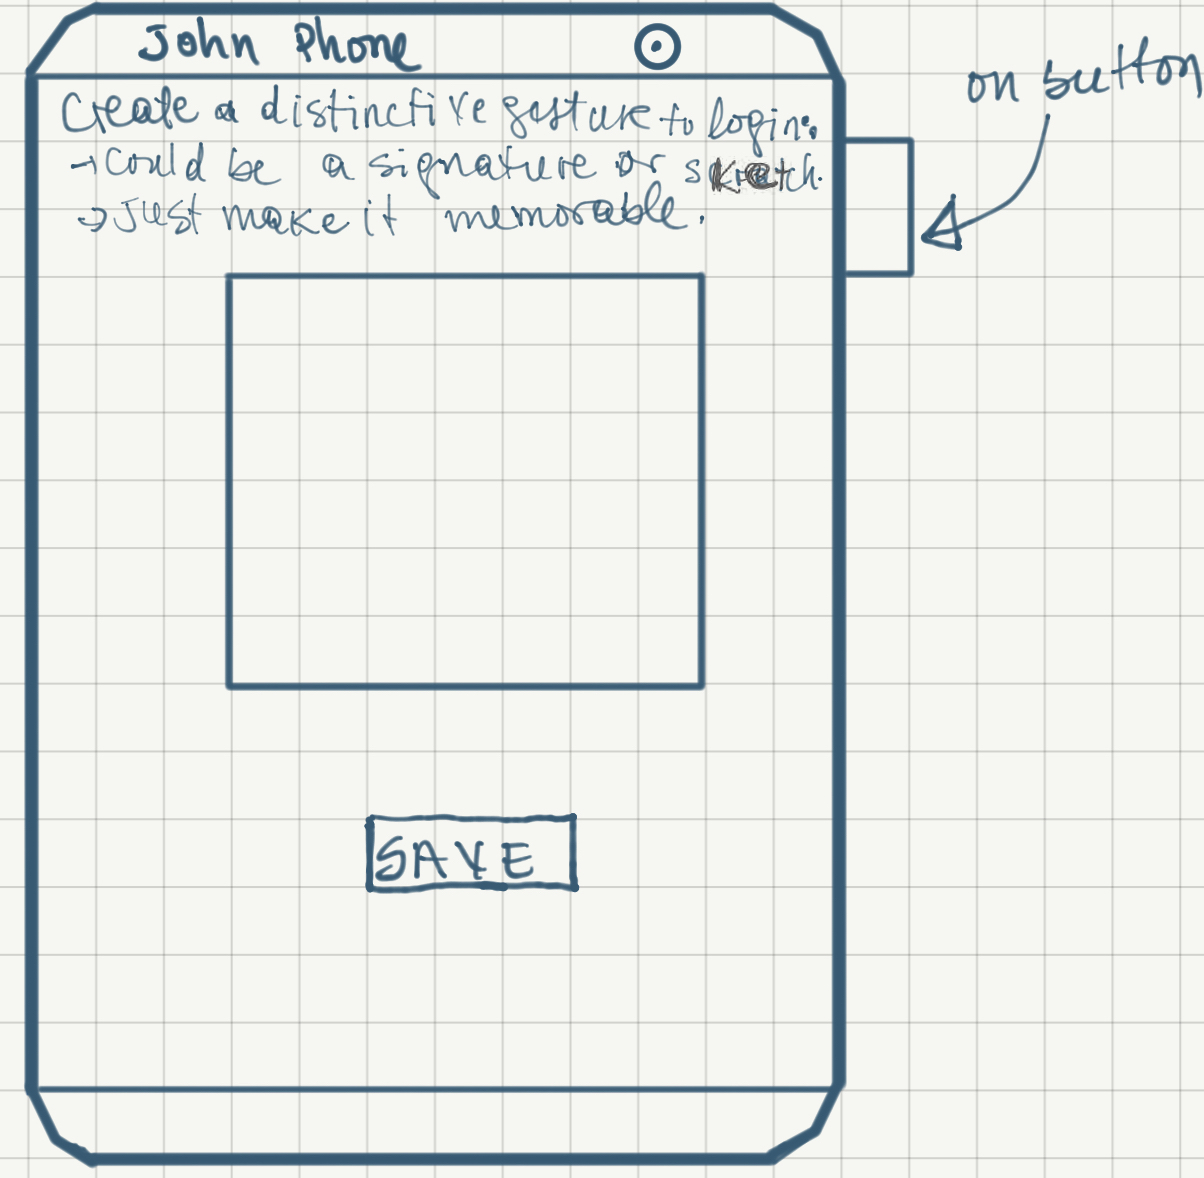 John Phone
on button
Create a distinctive gesture to login.
→ Could be a signature or sketch.
→ Just make it memorable.
SAVE